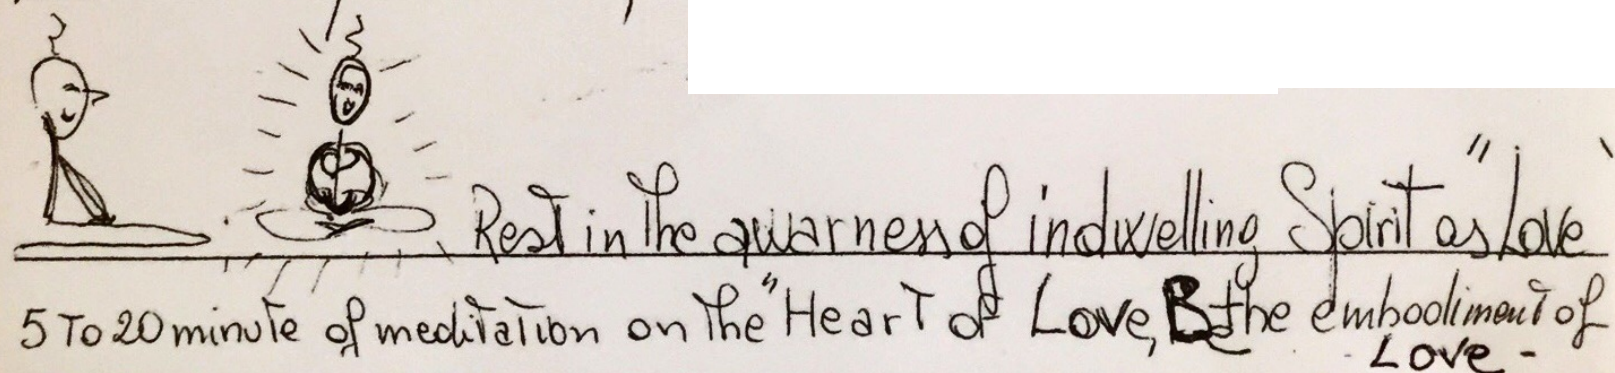 Rest in The awarness of indwelling Spirit as "Love"
5 To 20 minute of meditation on The "Heart of Love, B the embodiment of
Love -